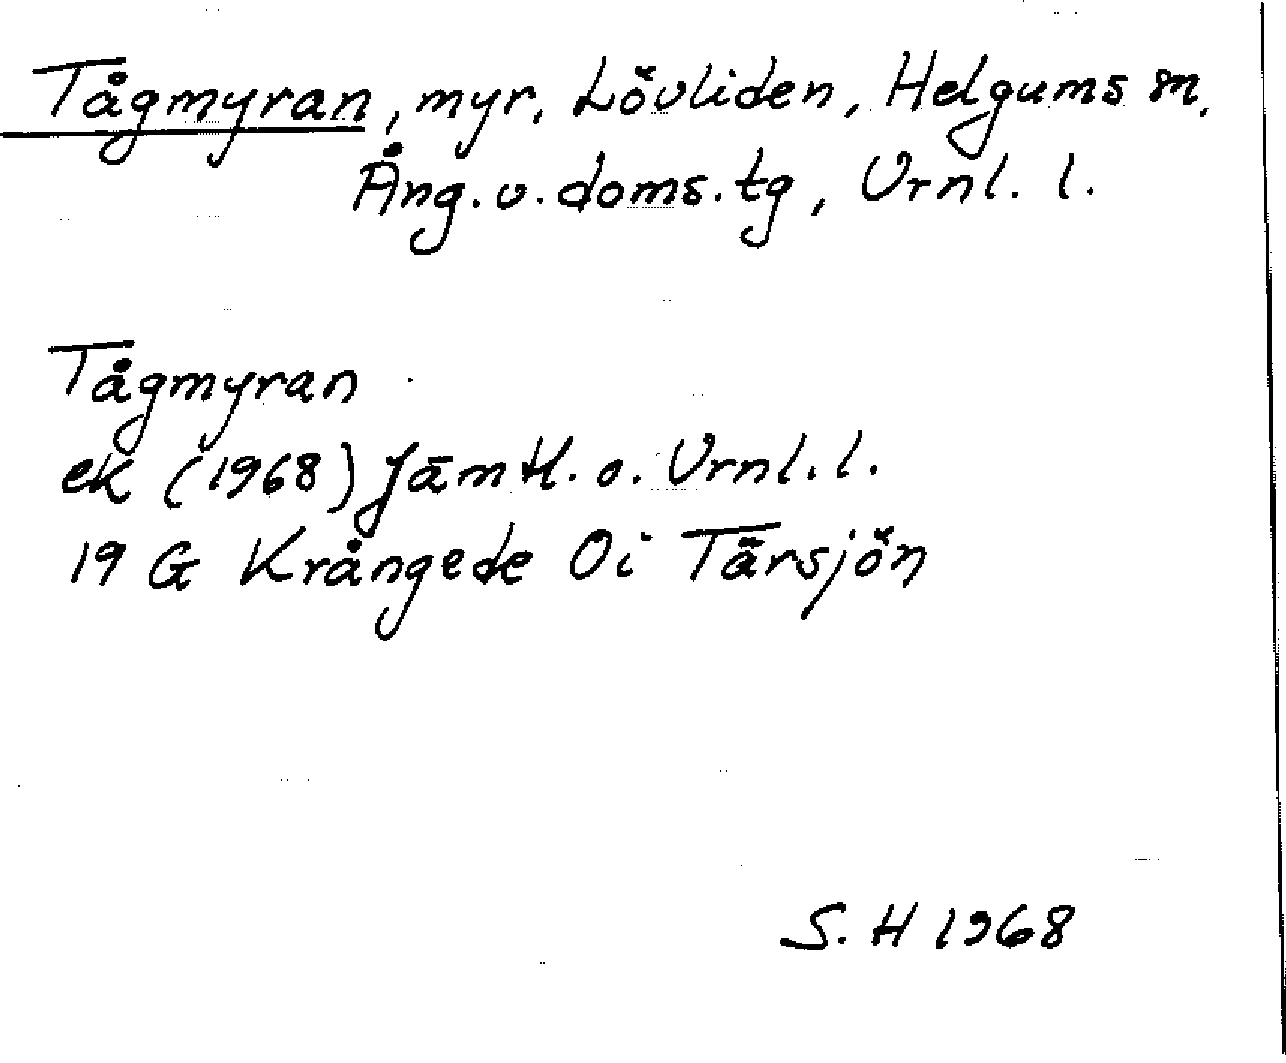 Tågmyran, myr, Lövliden, Helgums sn,
Ång. v. doms. tg, Vrnl. l.
Tågmyran
ek (1968) Jämtl. o. Vrnl. l.
19 G Krångede Oi Tärsjön
S. H 1968